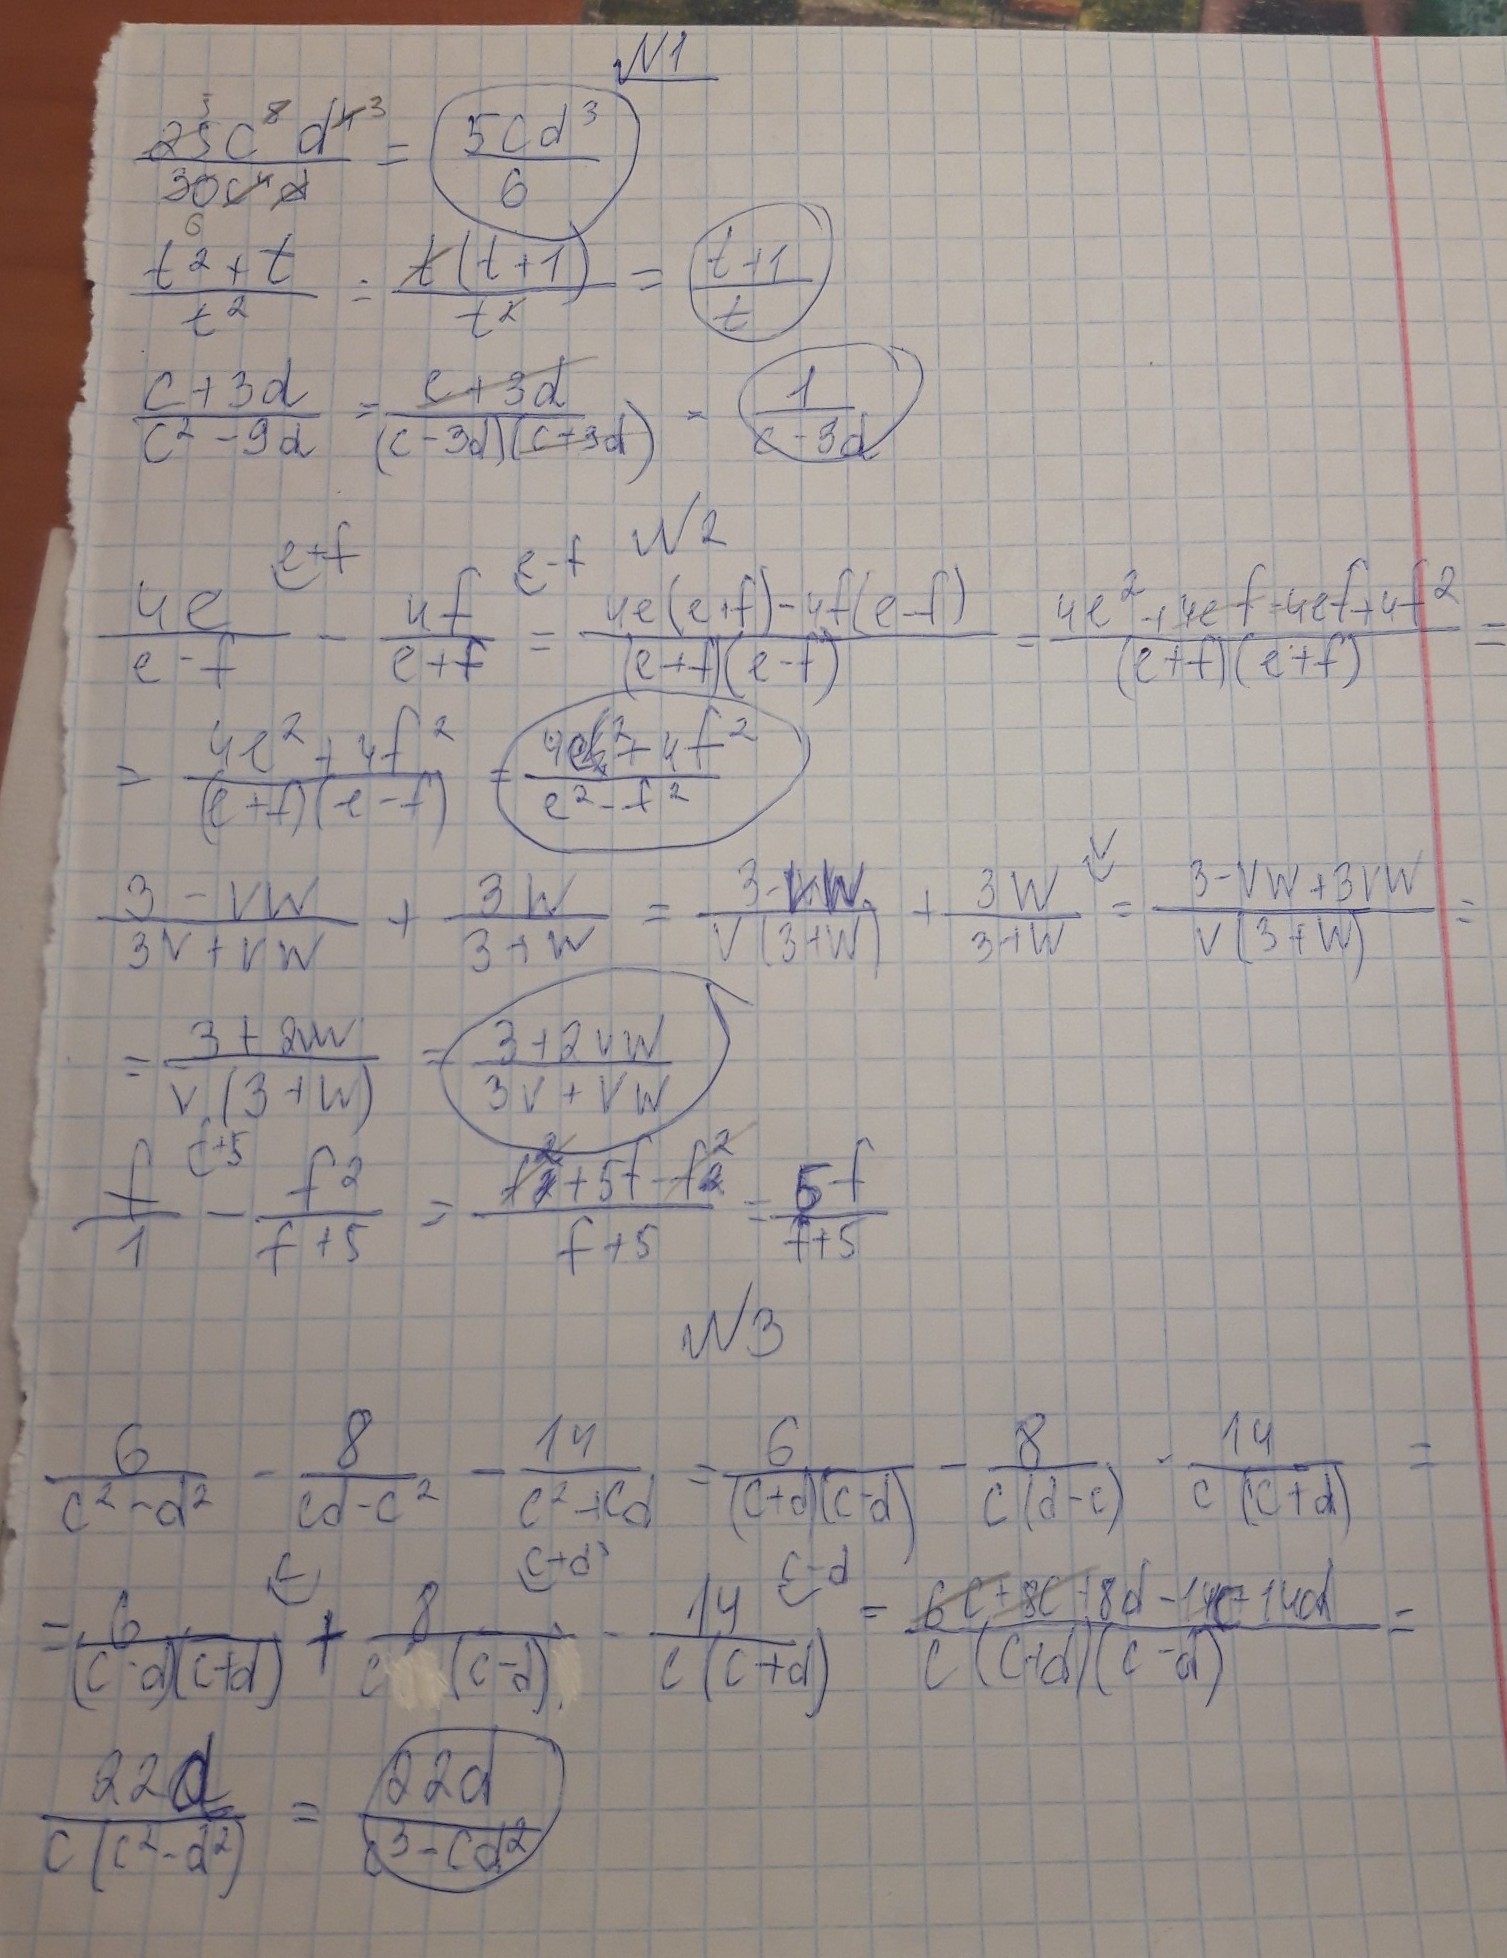 N1
25c⁸d⁴ ³/30c⁴d = 5cd³/6
t²+t/t² = t(t+1)/t² = t+1/t
c+3d/c²-9d = c+3d/(c-3d)(c+3d) = 1/c-3d
N2
4e/e-f - 4f/e+f = 4e(e+f)-4f(e-f)/(e+f)(e-f) = 4e²+4ef-4ef+4f²/(e+f)(e+f) =
= 4e²+4f²/(e+f)(e-f) = 4e²+4f²/e²-f²
3-vw/3v+vw + 3w/3+w = 3-vw/v(3+w) + 3w/3+w = 3-vw+3vw/v(3+w) =
= 3+2vw/v(3+w) = 3+2vw/3v+vw
f/1 - f²/f+5 = f²+5f-f²/f+5 = 5f/f+5
N3
6/c²-d² - 8/cd-c² - 14/c²+cd = 6/(c+d)(c-d) - 8/c(d-c) - 14/c(c+d) =
= 6/(c-d)(c+d) + 8/c(c-d) - 14/c(c+d) = 6c+8c+8d-14c+14d/c(c+d)(c-d) =
22d/c(c²-d²) = 22d/c³-cd²